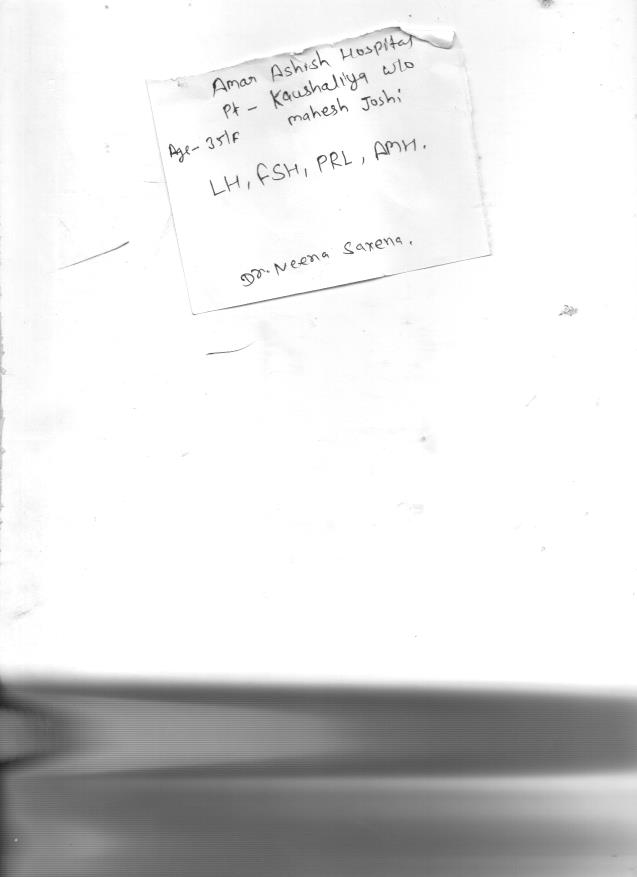 Amar Ashish Hospital
Pt - Kaushaliya w/o
mahesh Joshi
Age- 35/F
LH, FSH, PRL, AMH.
Dr. Neena Saxena.